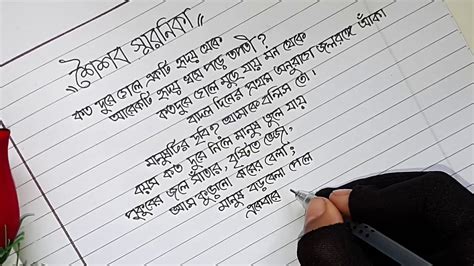 "শৈশব স্মরনিকা"
কত দূরে গেলে একটি হৃদয় থেকে
আরেকটি হৃদয় খসে পড়ে তাপসী?
কতদূরে গেলে মুছে যায় মন থেকে
বাদল দিনের প্রথম অনুরাগে জলরাঙে আঁকা
মানুষটির ছবি? আমাকে বলিস তো।
বয়স কত দূরে নিলে মানুষ ভুলে যায়
পুকুরের জলে সাঁতার, বৃষ্টিতে ভেজা,
আম কুড়ানো ঝড়ের বেলা;
মানুষ বড়বেলা পেলে
একেবারে